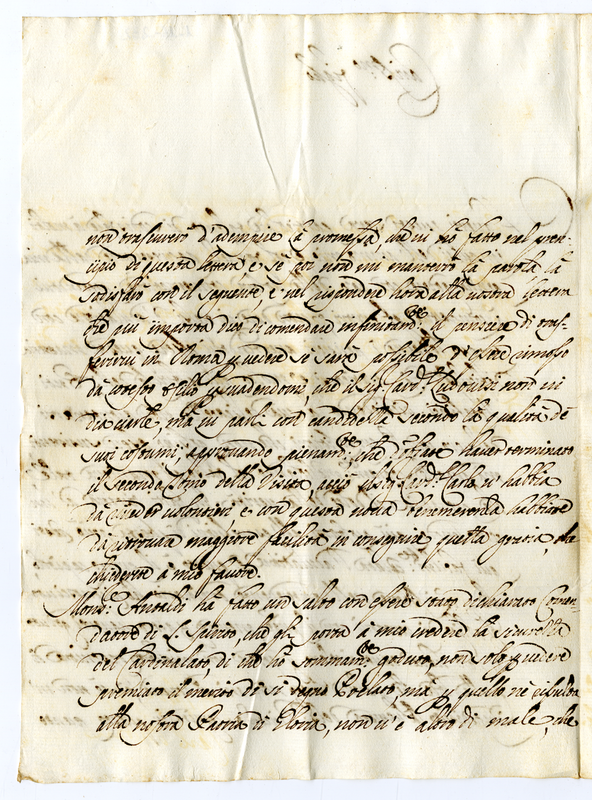 non trascurerò d'adempire la promessa, che vi hò fatto nel prin-
cipio di questa lettera, e se poi non mi manterrò la parola, la
sodisfarò con il seguente, e nel rispondere hora alla vostra lettera
che più importa dico di comendare infinitam.te il pensiere di tras-
ferirvi in Roma p vedere se sarà possibile d'esser rimosso
da cotesto persuadendomi, che il Sig. Card. Ludovisi non vi
dia ciarle, mà vi parli con candidezza secondo la qualità de
suoi costumi, approvando pienam.te, che doppo haver terminato
il secondo della Visita, acciò il Sig. Card. Carlo v'habbia
da volontieri e con questa nova benemerenza habbiate
da ritrovare maggiore facilità in conseguire quella grazia, che
chiederete à mio favore
Mons.r Ansaldi hà fatto un salto con essere stato dichiarato Comen-
datore di S. Spirito, che gli porta à mio credere la sicurezza
del Cardinalato, di che hò sommam.te goduto, non solo p vedere
premiato il merito di si degno Prelato, mà p quello ne risulta
alla nostra Patria di Gloria, non v'è altro di male, che